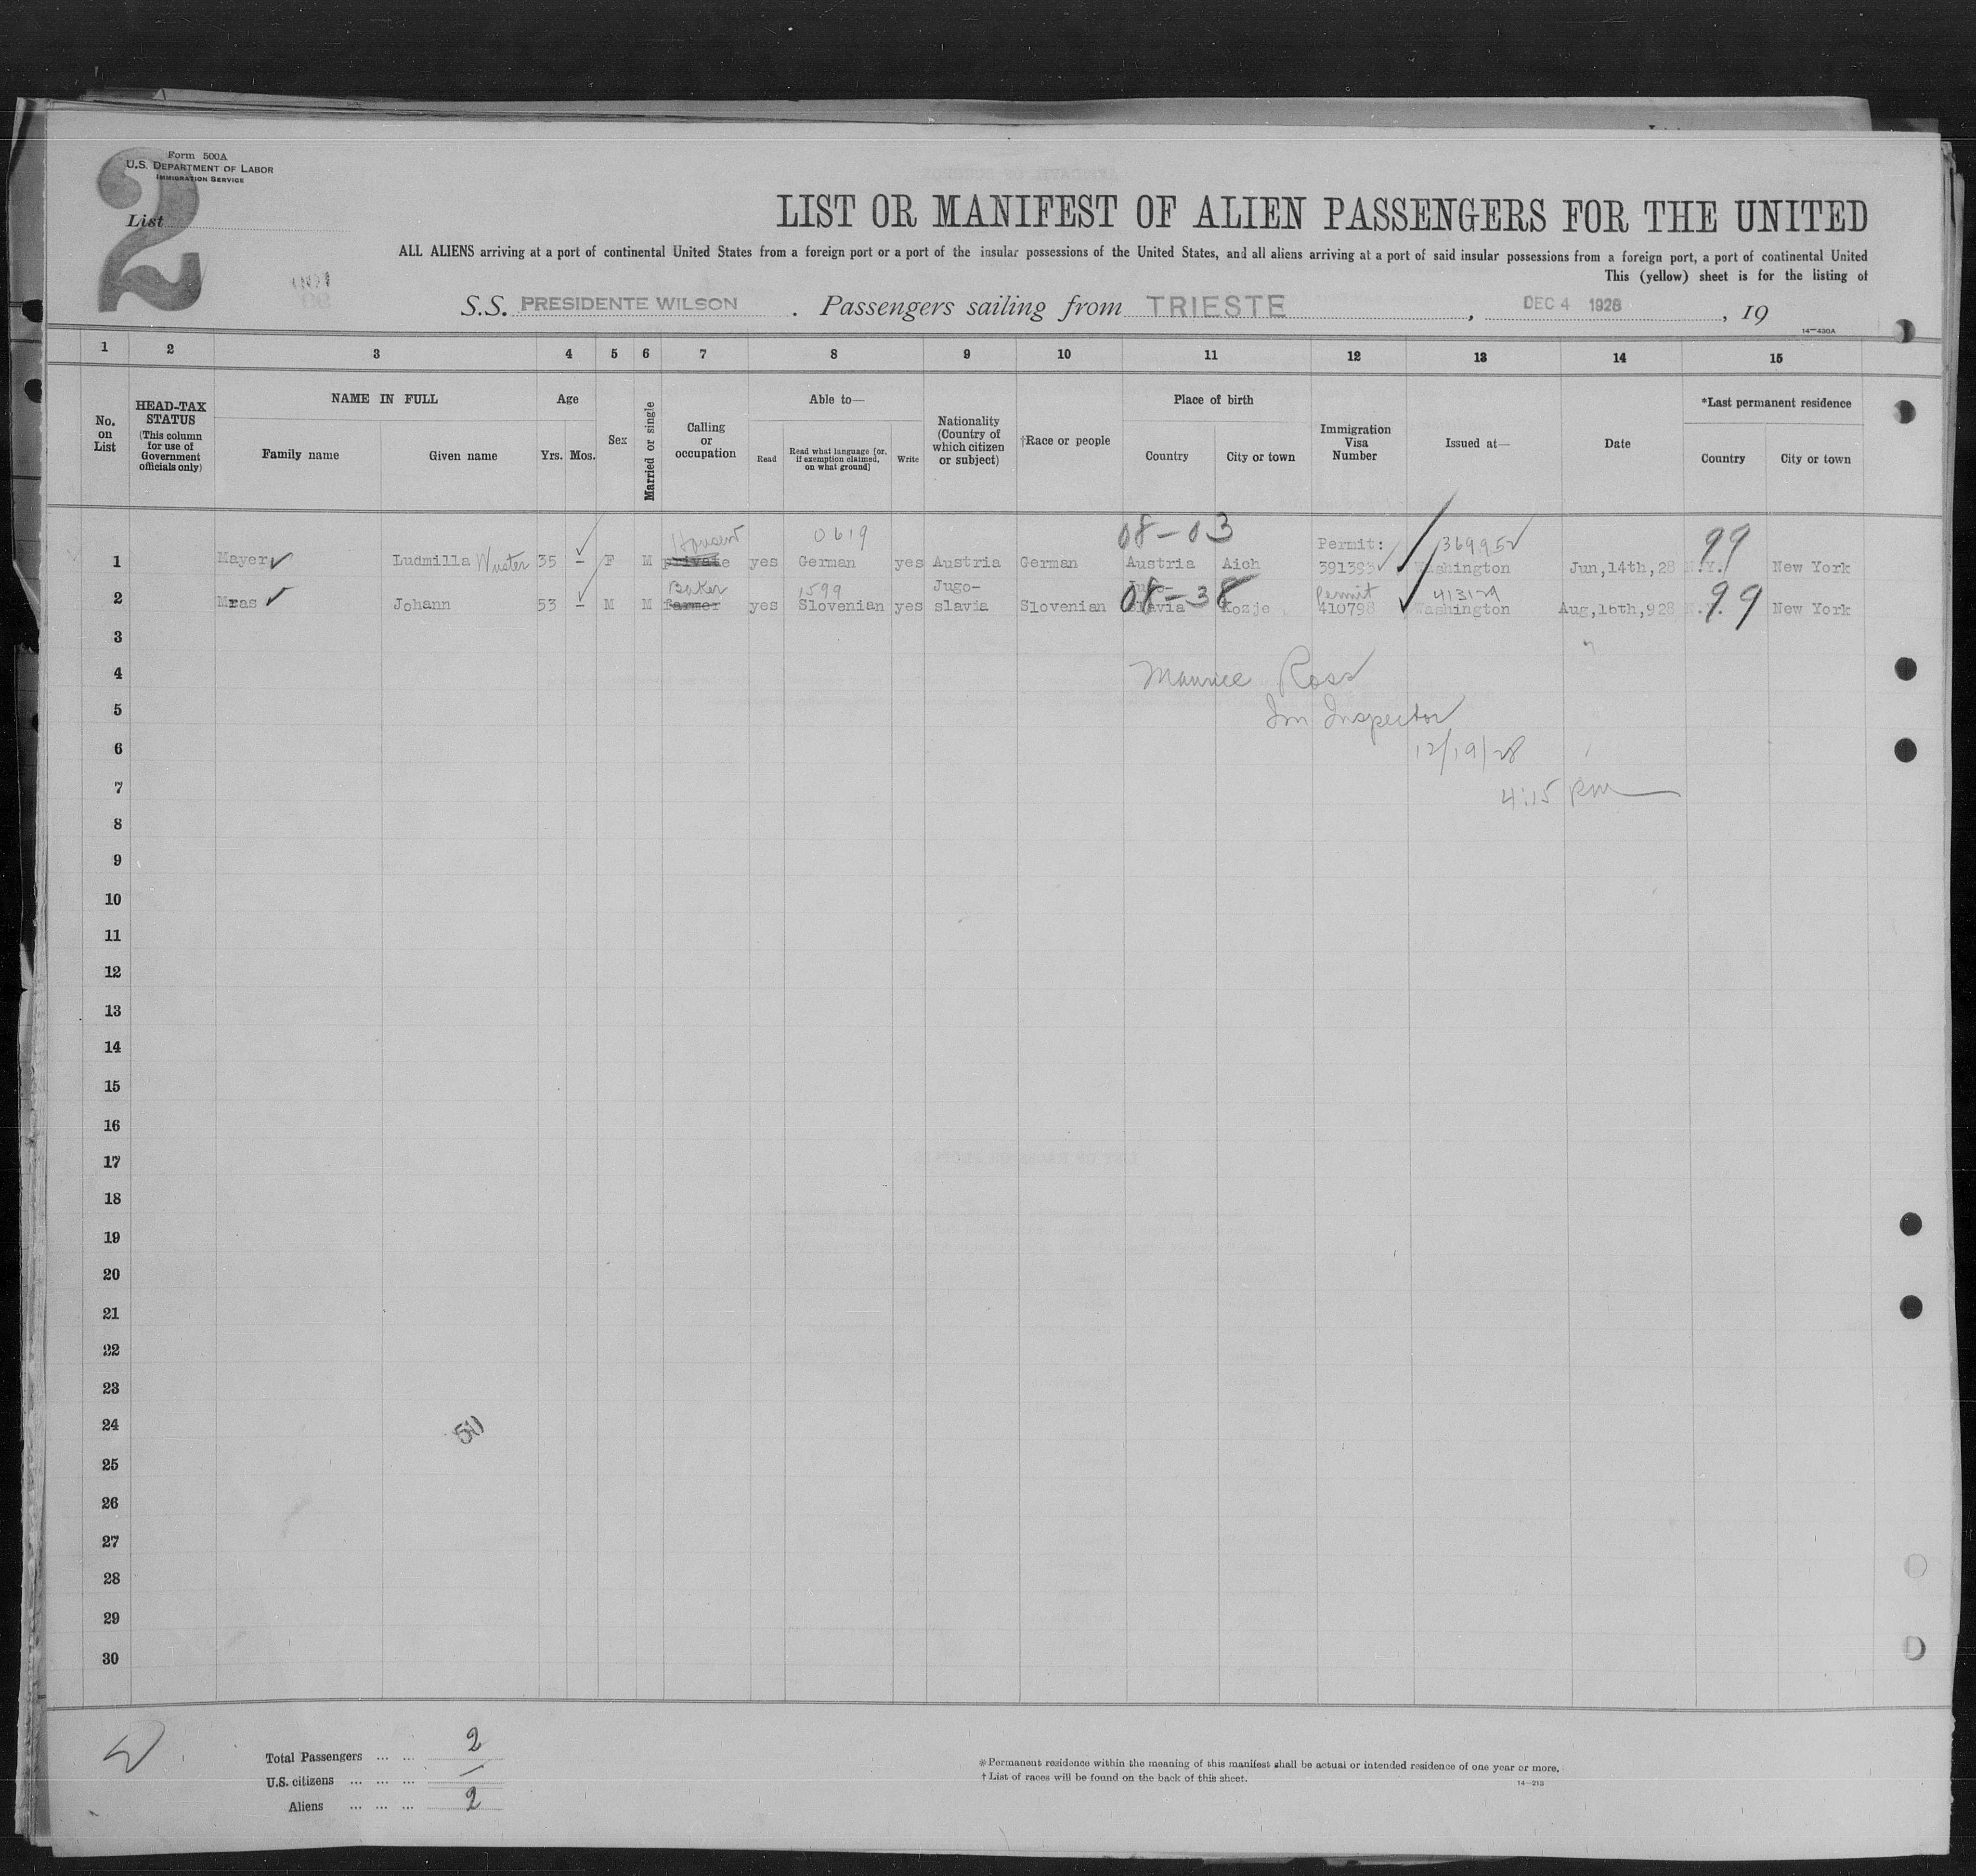 2
Form 500A
U.S. DEPARTMENT OF LABOR
IMMIGRATION SERVICE
List
LIST OR MANIFEST OF ALIEN PASSENGERS FOR THE UNITED
ALL ALIENS arriving at a port of continental United States from a foreign port or a port of the insular possessions of the United States, and all aliens arriving at a port of said insular possessions from a foreign port, a port of continental United
This (yellow) sheet is for the listing of
S.S. PRESIDENTE WILSON . Passengers sailing from TRIESTE , DEC 4 1928 , 19
14—430A
1 2 3 4 5 6 7 8 9 10 11 12 13 14 15
No. on List
HEAD-TAX STATUS (This column for use of Government officials only)
NAME IN FULL
Family name
Given name
Age
Yrs. Mos.
Sex
Married or single
Calling or occupation
Able to—
Read
Read what language [or, if exemption claimed, on what ground]
Write
Nationality (Country of which citizen or subject)
†Race or people
Place of birth
Country
City or town
Immigration Visa Number
Issued at—
Date
*Last permanent residence
Country
City or town
0619 08-03 Permit: 369952 99
1 Mayer Ludmilla Wuster 35 – F M private yes German yes Austria German Austria Aich 391393 Washington Jun,14th,28 N.Y. New York
Baker 1599 Jugo- Jugo- 08-38 Permit 413129 99
2 Mras Johann 53 – M M farmer yes Slovenian yes slavia Slovenian slavia Kozje 410798 Washington Aug,16th,928 N.Y. New York
3
4 Maurice Ross
5 Im Inspector
6 12/19/28
7 4:15 pm
8
9
10
11
12
13
14
15
16
17
18
19
20
21
22
23
24
50
25
26
27
28
29
30
Total Passengers ... ... 2
U.S. citizens ... ... ... /
Aliens ... ... ... 2
* Permanent residence within the meaning of this manifest shall be actual or intended residence of one year or more.
† List of races will be found on the back of this sheet.
14—213